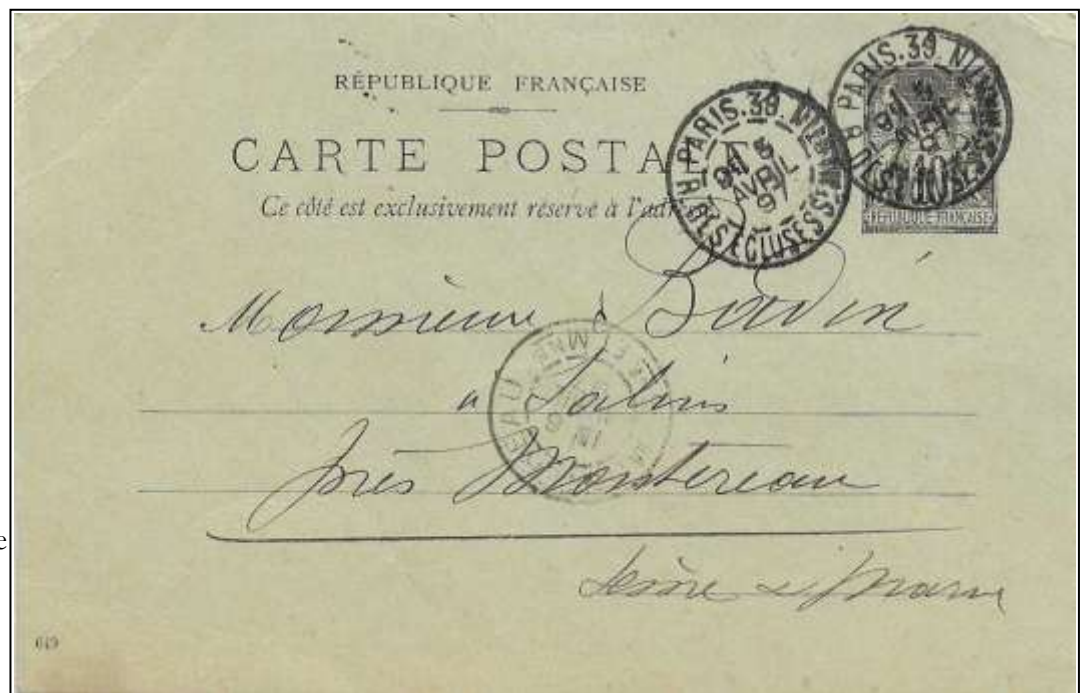 RÉPUBLIQUE FRANÇAISE
CARTE POSTALE
Ce côté est exclusivement réservé à l'adr
PARIS.39. R. DES ECLUSES St MARTIN
5
AVRIL
97
PARIS.39.
AVRIL
10
RÉPUBLIQUE FRANÇAISE
Monsieur Badin
à Salins
près Montereau
Seine et Marne
EAU
e
649